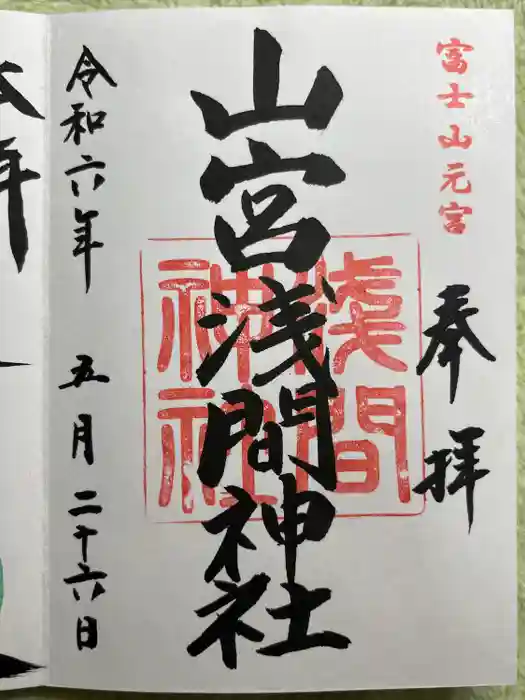 富士山元宮
奉拝
山宮浅間神社
浅間
神社
令和六年 五月二十六日